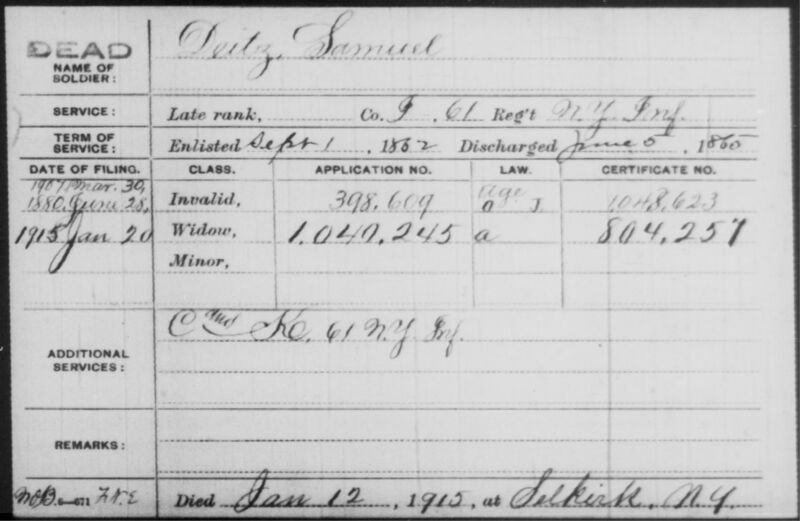 DEAD Deitz, Samuel
NAME OF
SOLDIER:
SERVICE: Late rank, Co. I, 61 Reg't N.Y. Inf.
TERM OF
SERVICE: Enlisted Sept 1, 1862 Discharged June 5, 1865
DATE OF FILING. CLASS. APPLICATION NO. LAW. CERTIFICATE NO.
1907 Mar. 30, age
1880 June 28, Invalid, 398,609 O J 1,048,623
1915 Jan 20 Widow, 1,040,245 a 804,257
Minor,
K, 61 N.Y. Inf.
ADDITIONAL
SERVICES:
REMARKS:
6-671 Died Jan 12, 1915, at Selkirk, N.Y.